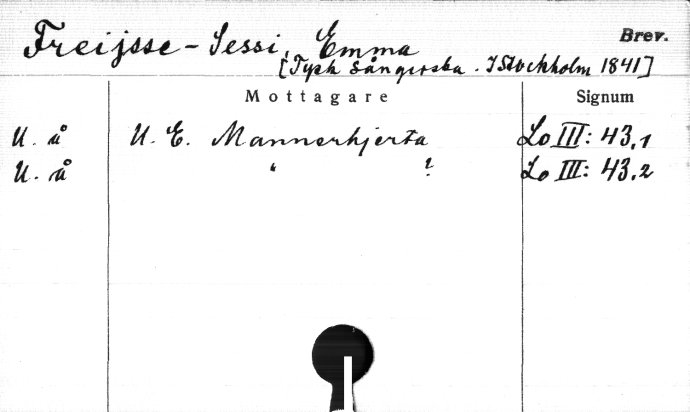 Freijsse-Sessi, Emma Brev.
[Tysk sångerska. I Stockholm 1841]
Mottagare Signum
U. å U. E. Mannerhjerta Lo III: 43,1
U. å " ? Lo III: 43,2